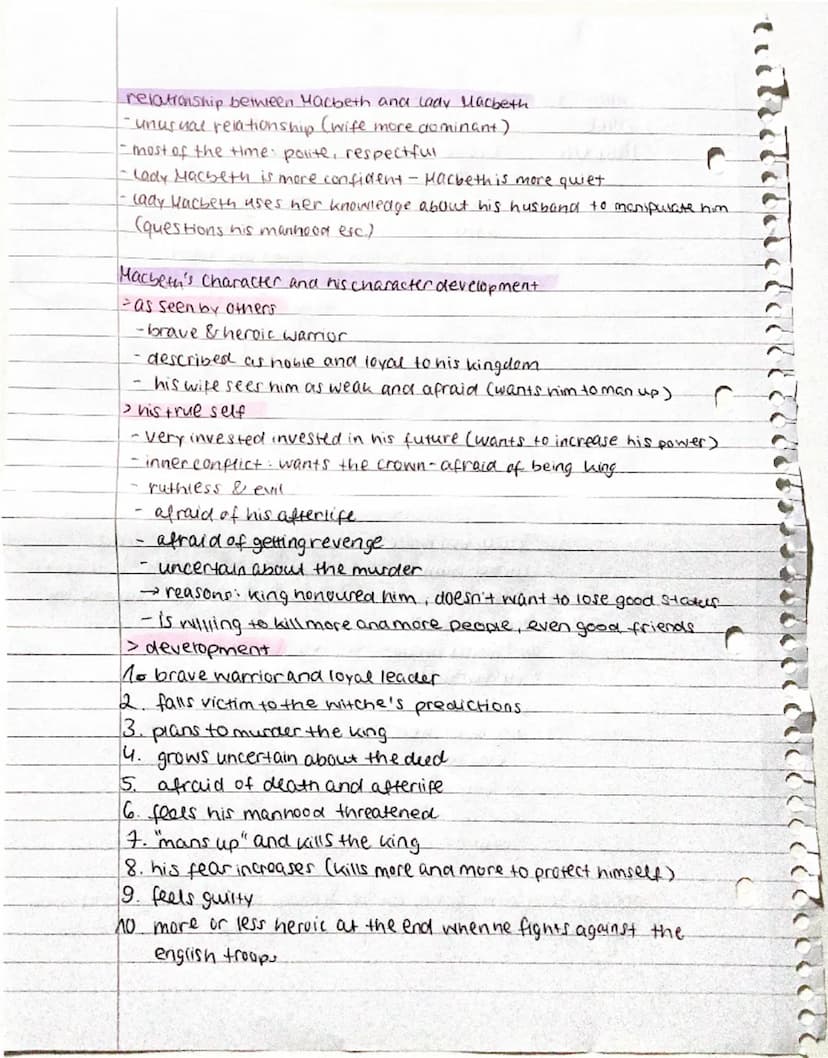 relationship between Macbeth and Lady Macbeth
- unusual relationship (wife more dominant)
- most of the time: polite, respectful
- Lady Macbeth is more confident - Macbeth is more quiet
- Lady Macbeth uses her knowledge about his husband to manipulate him
(questions his manhood esc.)
Macbeth's character and his character development
> as seen by others
- brave & heroic warrior
- described as noble and loyal to his kingdom
- his wife sees him as weak and afraid (wants him to man up)
> his true self
- very invested invested in his future (wants to increase his power)
- inner conflict: wants the crown - afraid of being king
- ruthless & evil
- afraid of his afterlife
- afraid of getting revenge
- uncertain about the murder
→ reasons: king honoured him, doesn't want to lose good status
- is willing to kill more and more people, even good friends
> development
1. brave warrior and loyal leader
2. falls victim to the witche's predictions
3. plans to murder the king
4. grows uncertain about the deed
5. afraid of death and afterlife
6. feels his manhood threatened
7. "mans up" and kills the king
8. his fear increases (kills more and more to protect himself)
9. feels guilty
10. more or less heroic at the end when he fights against the
english troops